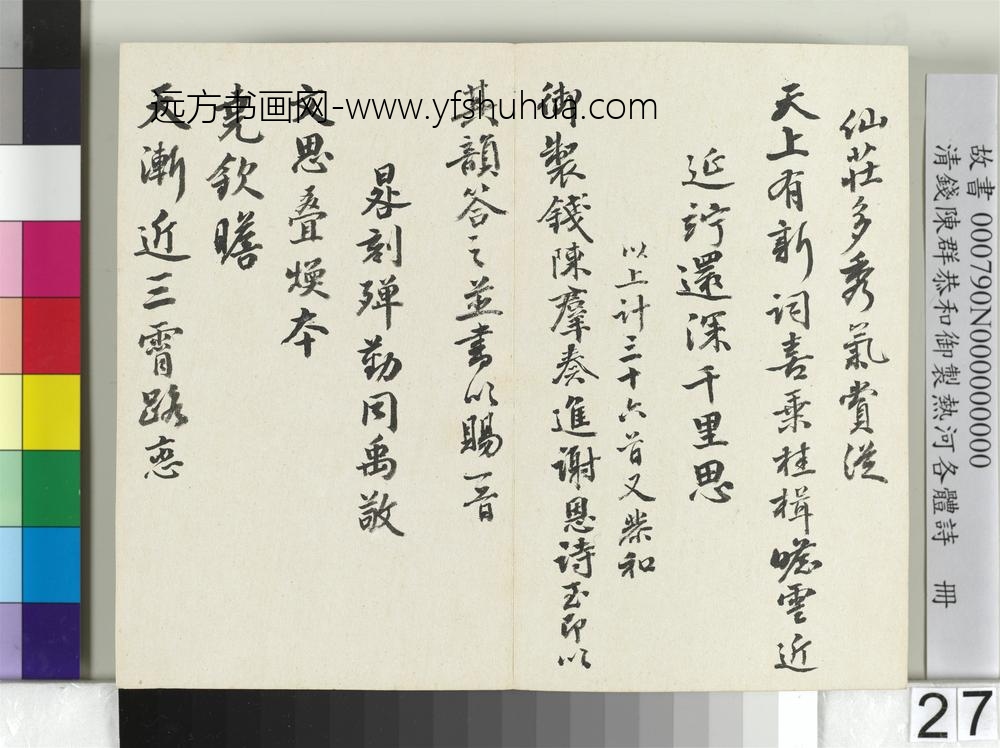 仙莊多秀氣賞從
天上有新詞喜乘桂楫瞻雲近
延竚還深千里思
以上計三十六首又恭和
御製錢陳群奏進謝恩詩至即以
其韻答之並書以賜一首
晷刻殫勤同禹敬
文思疊煥本
堯欽瞻
天漸近三霄路戀
远方书画网-www.yfshuhua.com
故書 000790N000000000
清錢陳群恭和御製熱河各體詩 冊
27